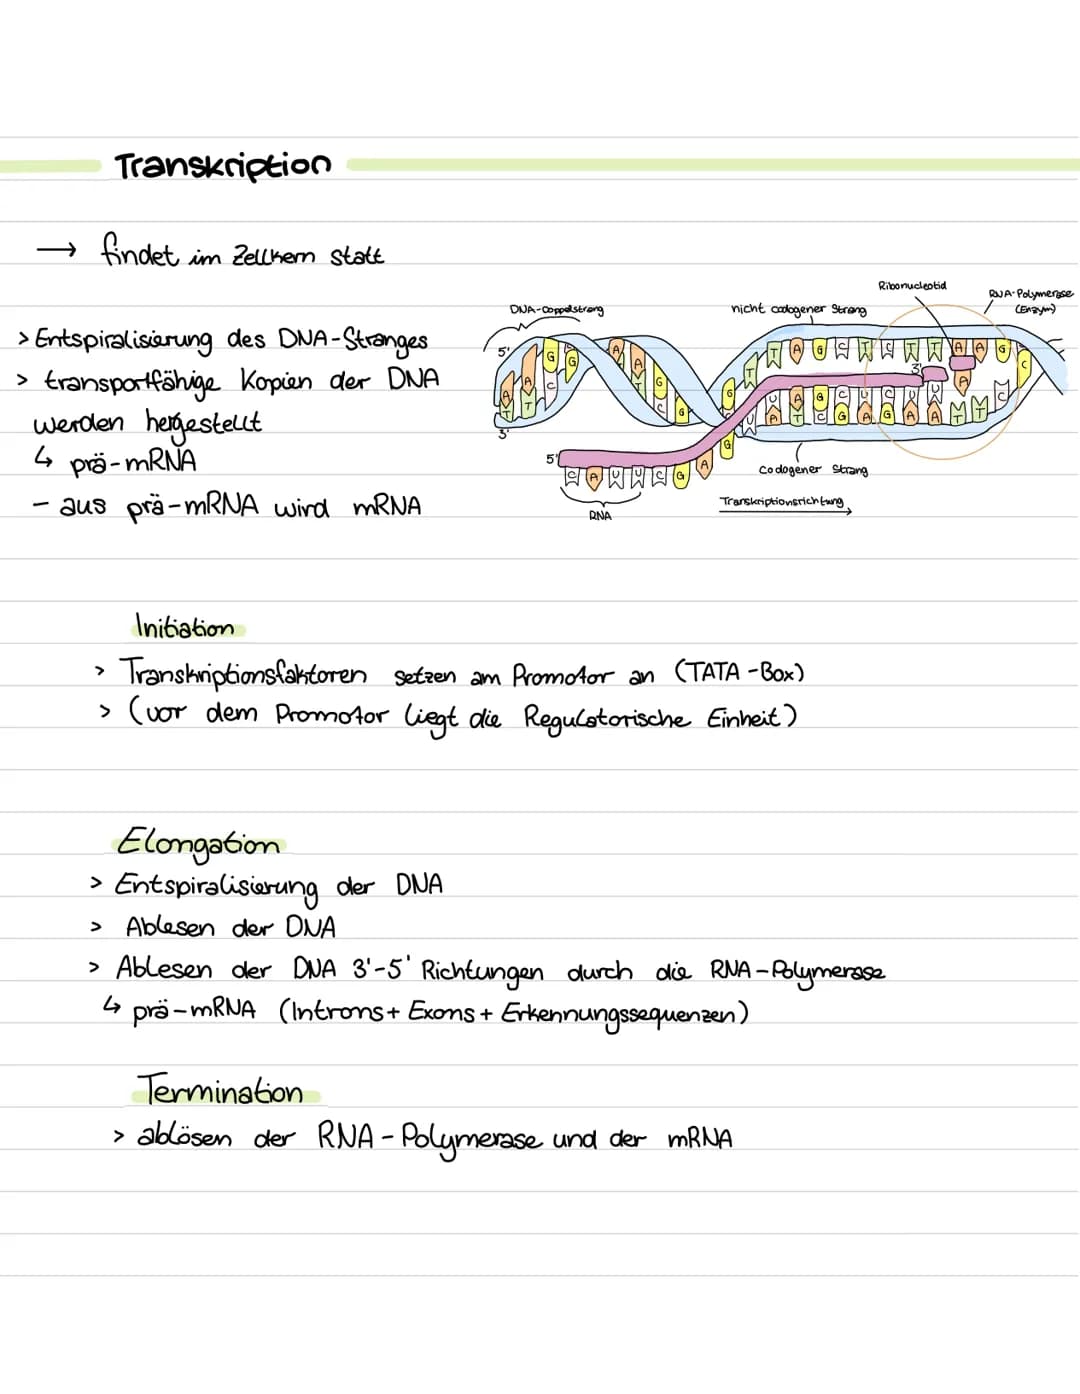 Transkription
→ findet im Zellkern statt
> Entspiralisierung des DNA-Stranges
> transportfähige Kopien der DNA
werden hergestellt
↳ prä-mRNA
- aus prä-mRNA wird mRNA
DNA-Doppelstrang
nicht codogener Strang
Ribonucleotid
RNA-Polymerase
(Enzym)
5'
3'
5'
3'
C A U U C G A G
RNA
T A G C T C T T A A G
U A G C U C U U
A T C G A G A A
Codogener Strang
Transkriptionsrichtung
Initiation
> Transkriptionsfaktoren setzen am Promotor an (TATA-Box)
> (vor dem Promotor liegt die Regulatorische Einheit)
Elongation
> Entspiralisierung der DNA
> Ablesen der DNA
> Ablesen der DNA 3'-5' Richtungen durch die RNA-Polymerase
↳ prä-mRNA (Introns+ Exons + Erkennungssequenzen)
Termination
> ablösen der RNA-Polymerase und der mRNA